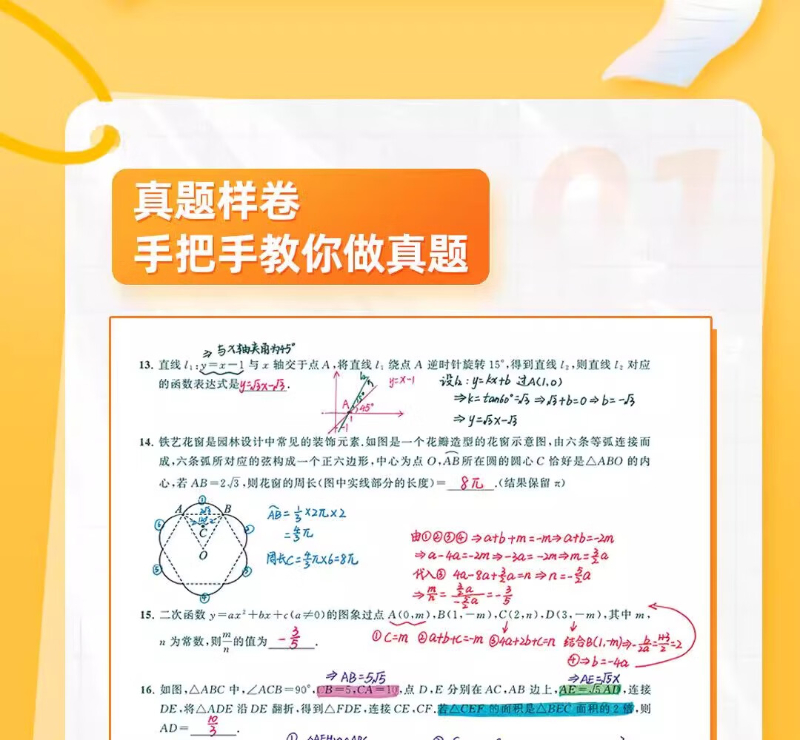 01
真题样卷
手把手教你做真题
⇒与x轴夹角为45°
13. 直线 l₁:y=x-1 与 x 轴交于点 A,将直线 l₁ 绕点 A 逆时针旋转 15°,得到直线 l₂,则直线 l₂ 对应
的函数表达式是 y=√3x-√3 .
l₂
l₁
y=x-1
A
15°
45°
1
-1
设l₂:y=kx+b 过A(1,0)
⇒k=tan60°=√3 ⇒√3+b=0⇒b=-√3
⇒y=√3x-√3
14. 铁艺花窗是园林设计中常见的装饰元素.如图是一个花瓣造型的花窗示意图,由六条等弧连接而
成,六条弧所对应的弦构成一个正六边形,中心为点 O,AB所在圆的圆心 C 恰好是△ABO 的内
心,若 AB=2√3,则花窗的周长(图中实线部分的长度)= 8π .(结果保留 π)
① ② ③ ④ ⑤ ⑥
A
B
C
O
AB=1/3×2π×2
=4/3π
周长C=4/3π×6=8π
由①②③④⇒a+b+m=-m⇒a+b=-2m
⇒a-4a=-2m⇒-3a=-2m⇒m=3/2a
代入③ 4a-8a+3/2a=n⇒n=-5/2a
⇒m/n=(3/2a)/(-5/2a)=-3/5
15. 二次函数 y=ax²+bx+c(a≠0)的图象过点 A(0,m),B(1,-m),C(2,n),D(3,-m),其中 m,
n 为常数,则m/n的值为 -3/5 .
①C=m ②a+b+c=-m ③4a+2b+c=n 结合B(1,-m)⇒-b/2a=(1+3)/2=2
④⇒b=-4a
⇒AB=5√5
⇒AE=√5x
16. 如图,△ABC 中,∠ACB=90°,CB=5,CA=10,点 D,E 分别在 AC,AB 边上,AE=√5AD,连接
DE,将△ADE 沿 DE 翻折,得到△FDE,连接 CE,CF,若△CEF 的面积是△BEC 面积的 2 倍,则
AD= 10/3 .